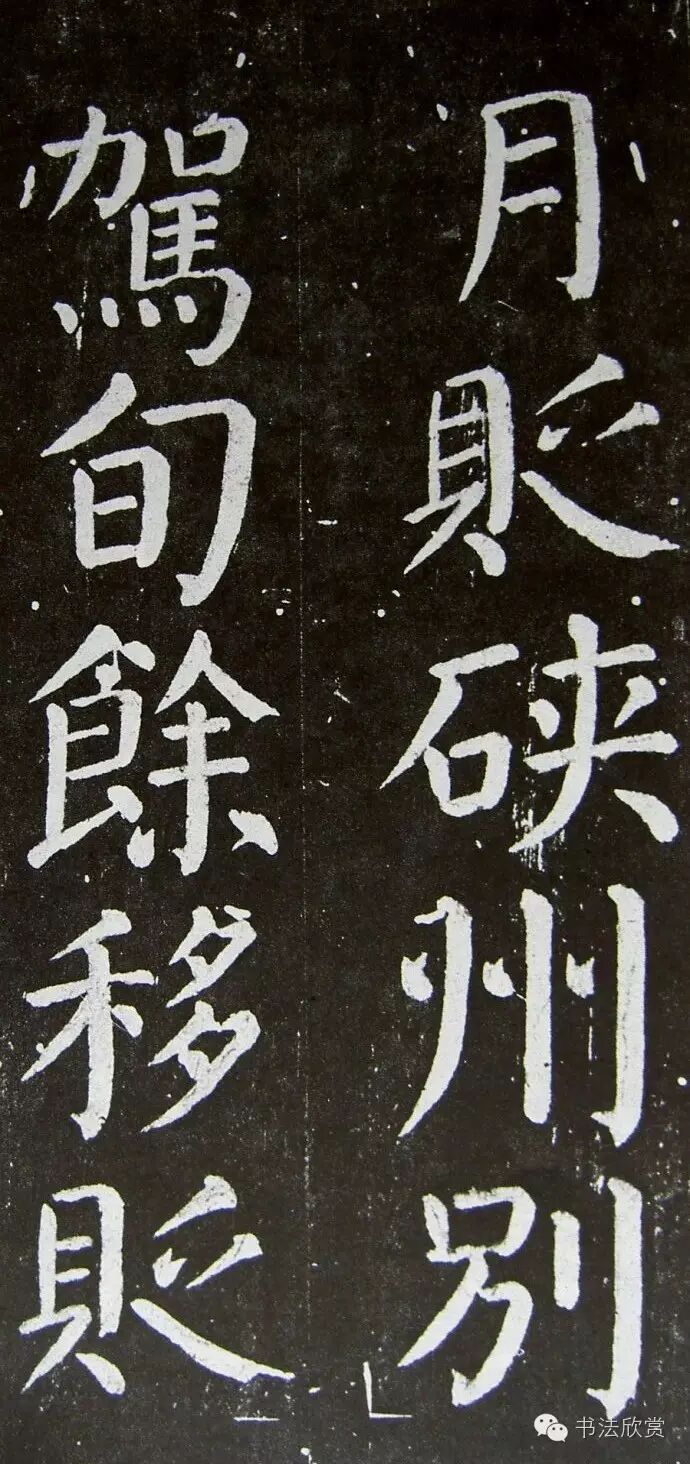 月貶硖州別
駕旬餘移貶
书法欣赏